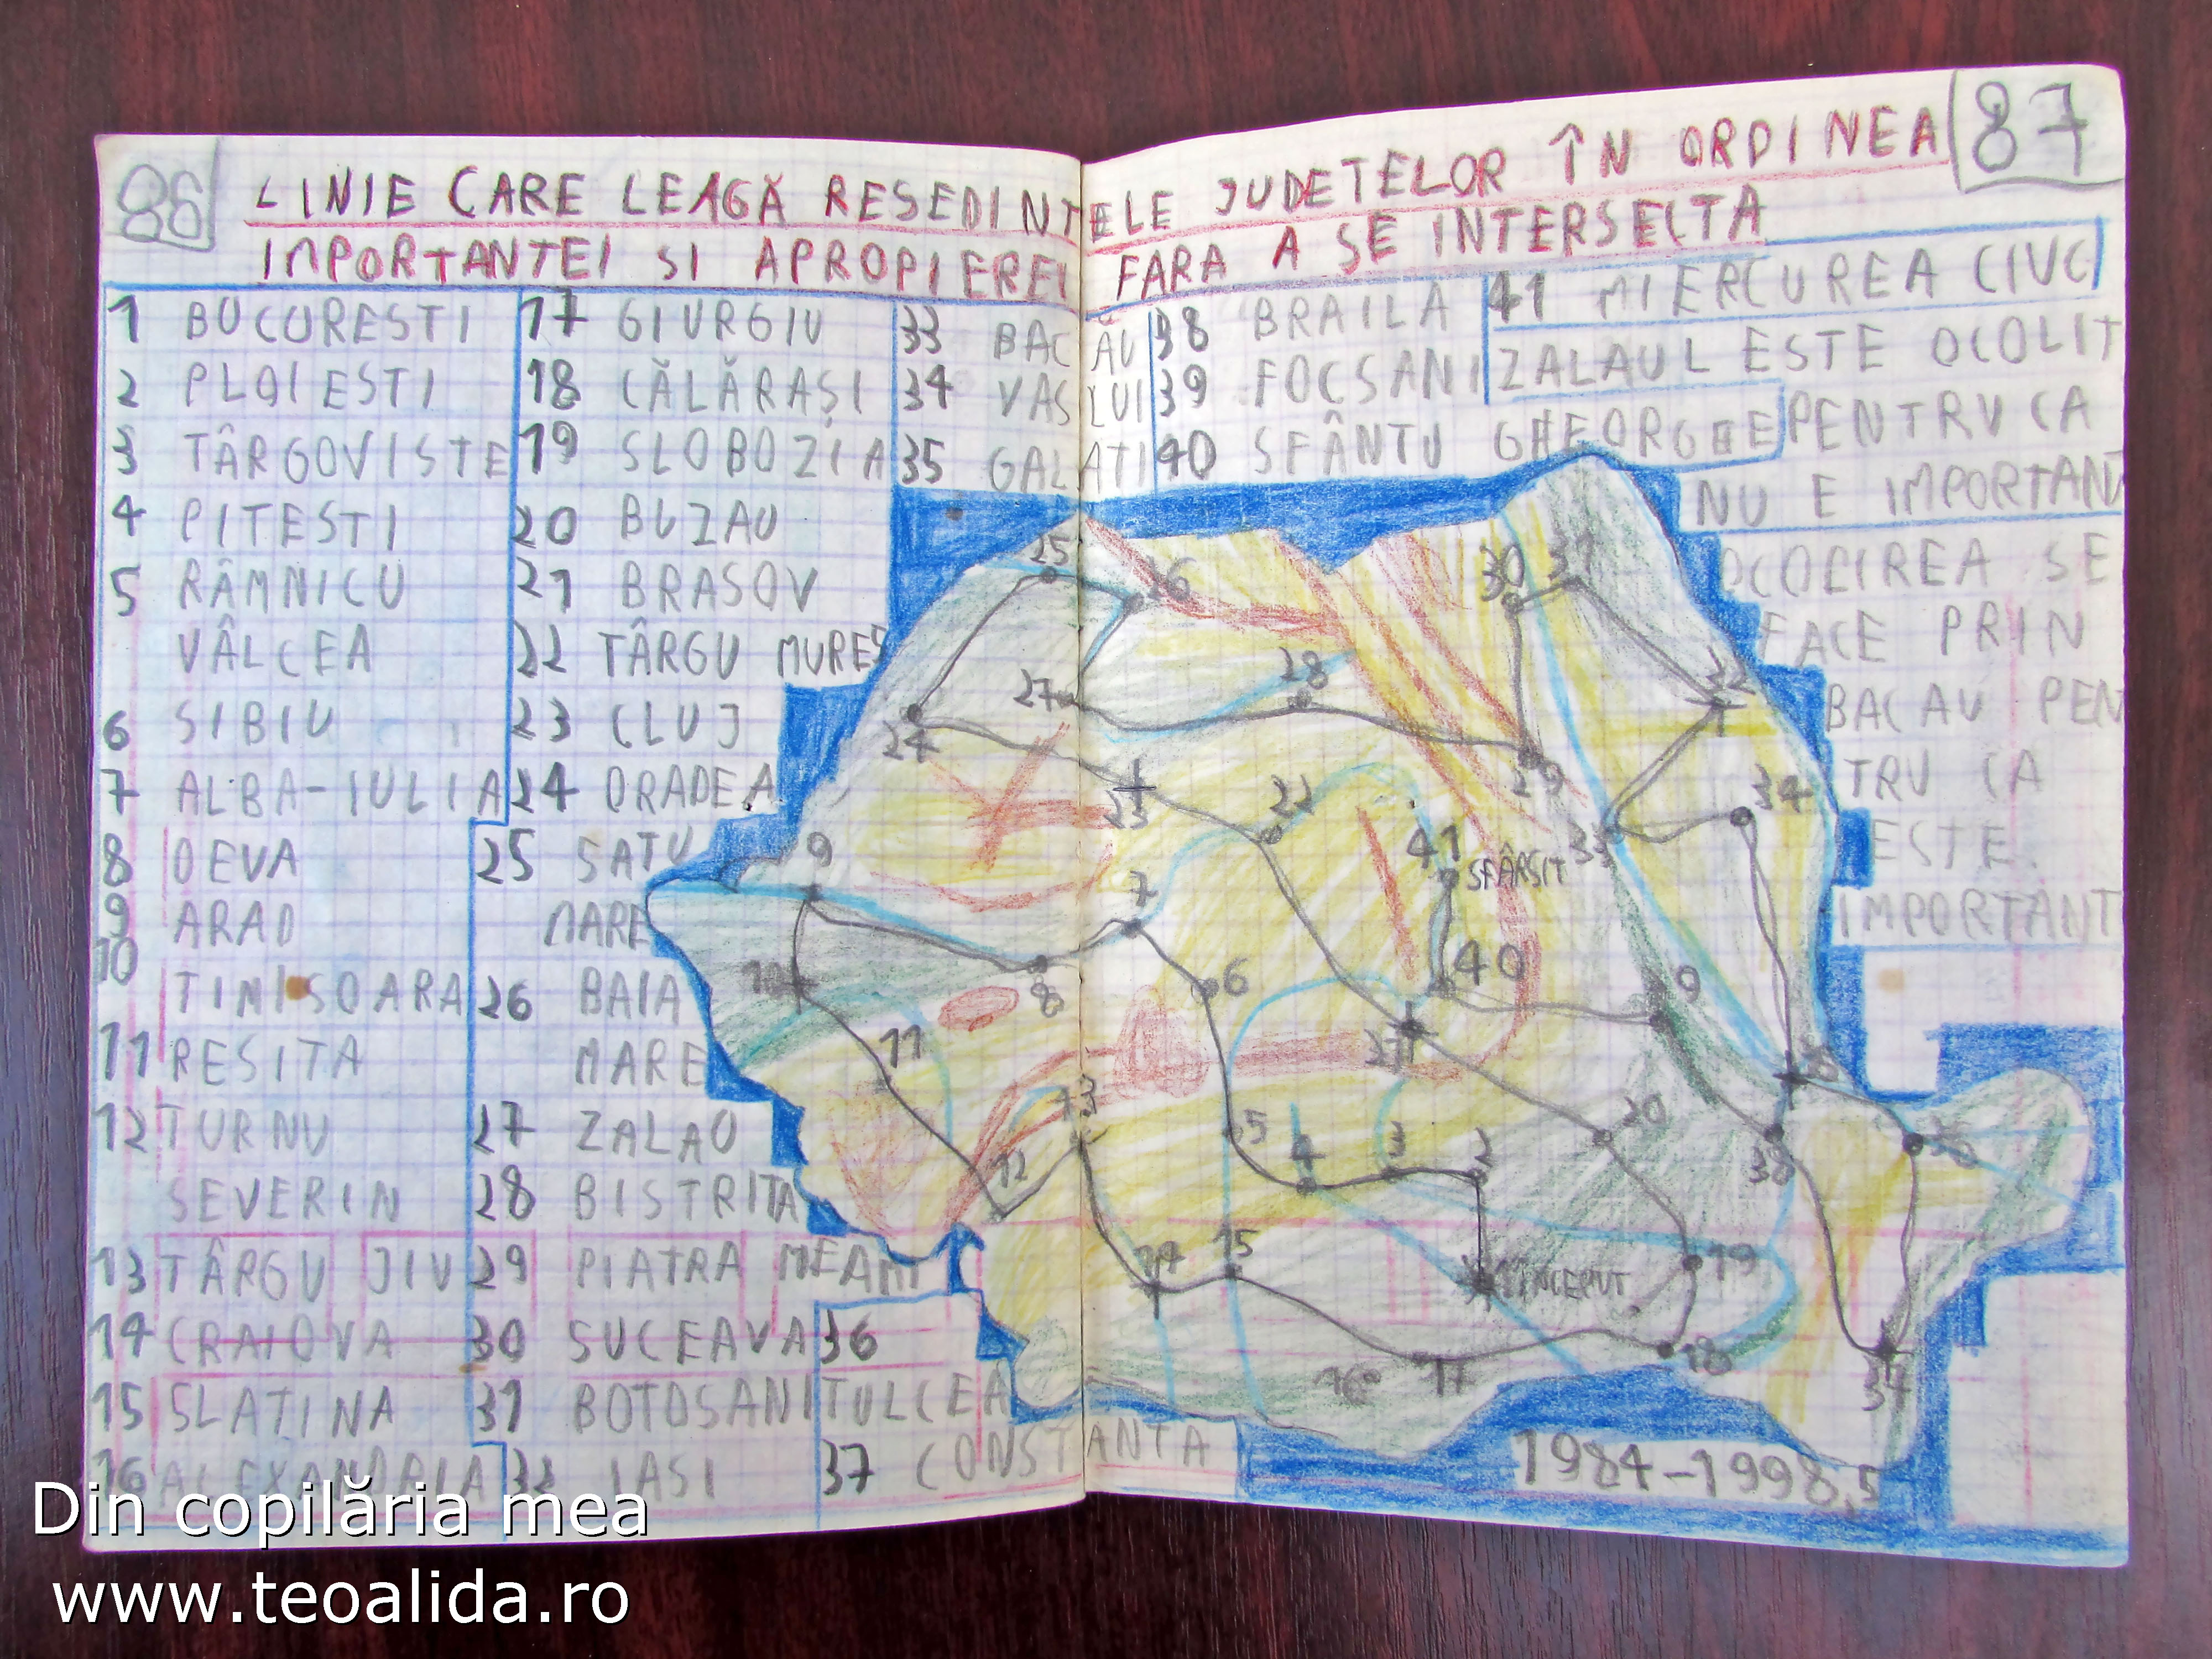 86
LINIE CARE LEAGĂ RESEDINTELE JUDETELOR ÎN ORDINEA
87
IMPORTANTEI SI APROPIEREI FARA A SE INTERSECTA
1 BUCURESTI
2 PLOIESTI
3 TÂRGOVISTE
4 PITESTI
5 RÂMNICU
VÂLCEA
6 SIBIU
7 ALBA-IULIA
8 DEVA
9 ARAD
10
TIMISOARA
11 RESITA
12 TURNU
SEVERIN
13 TÂRGU JIU
14 CRAIOVA
15 SLATINA
16 ALEXANDRIA
17 GIURGIU
18 CĂLĂRAȘI
19 SLOBOZIA
20 BUZAU
21 BRASOV
22 TÂRGU MURES
23 CLUJ
24 ORADEA
25 SATU
MARE
26 BAIA
MARE
27 ZALAU
28 BISTRITA
29 PIATRA MEAMT
30 SUCEAVA
31 BOTOSANI
32 IASI
33 BACĂU
34 VASLUI
35 GALATI
36
TULCEA
37 CONSTANTA
38 BRAILA
39 FOCSANI
40 SFÂNTU GHEORGHE
41 MIERCUREA CIUC
ZALAUL ESTE OCOLIT
PENTRU CA
NU E IMPORTANT
OCOLIREA SE
FACE PRIN
BACAU PEN
TRU CA
ESTE
IMPORTANT
25
26
30
31
27
28
32
24
29
23
22
34
9
41
SFÂRSIT
33
7
10
8
6
40
9
11
21
35
13
5
4
3
2
20
38
36
12
14
15
1 INCEPUT
19
16
17
18
37
1984-1998,5
Din copilăria mea
www.teoalida.ro